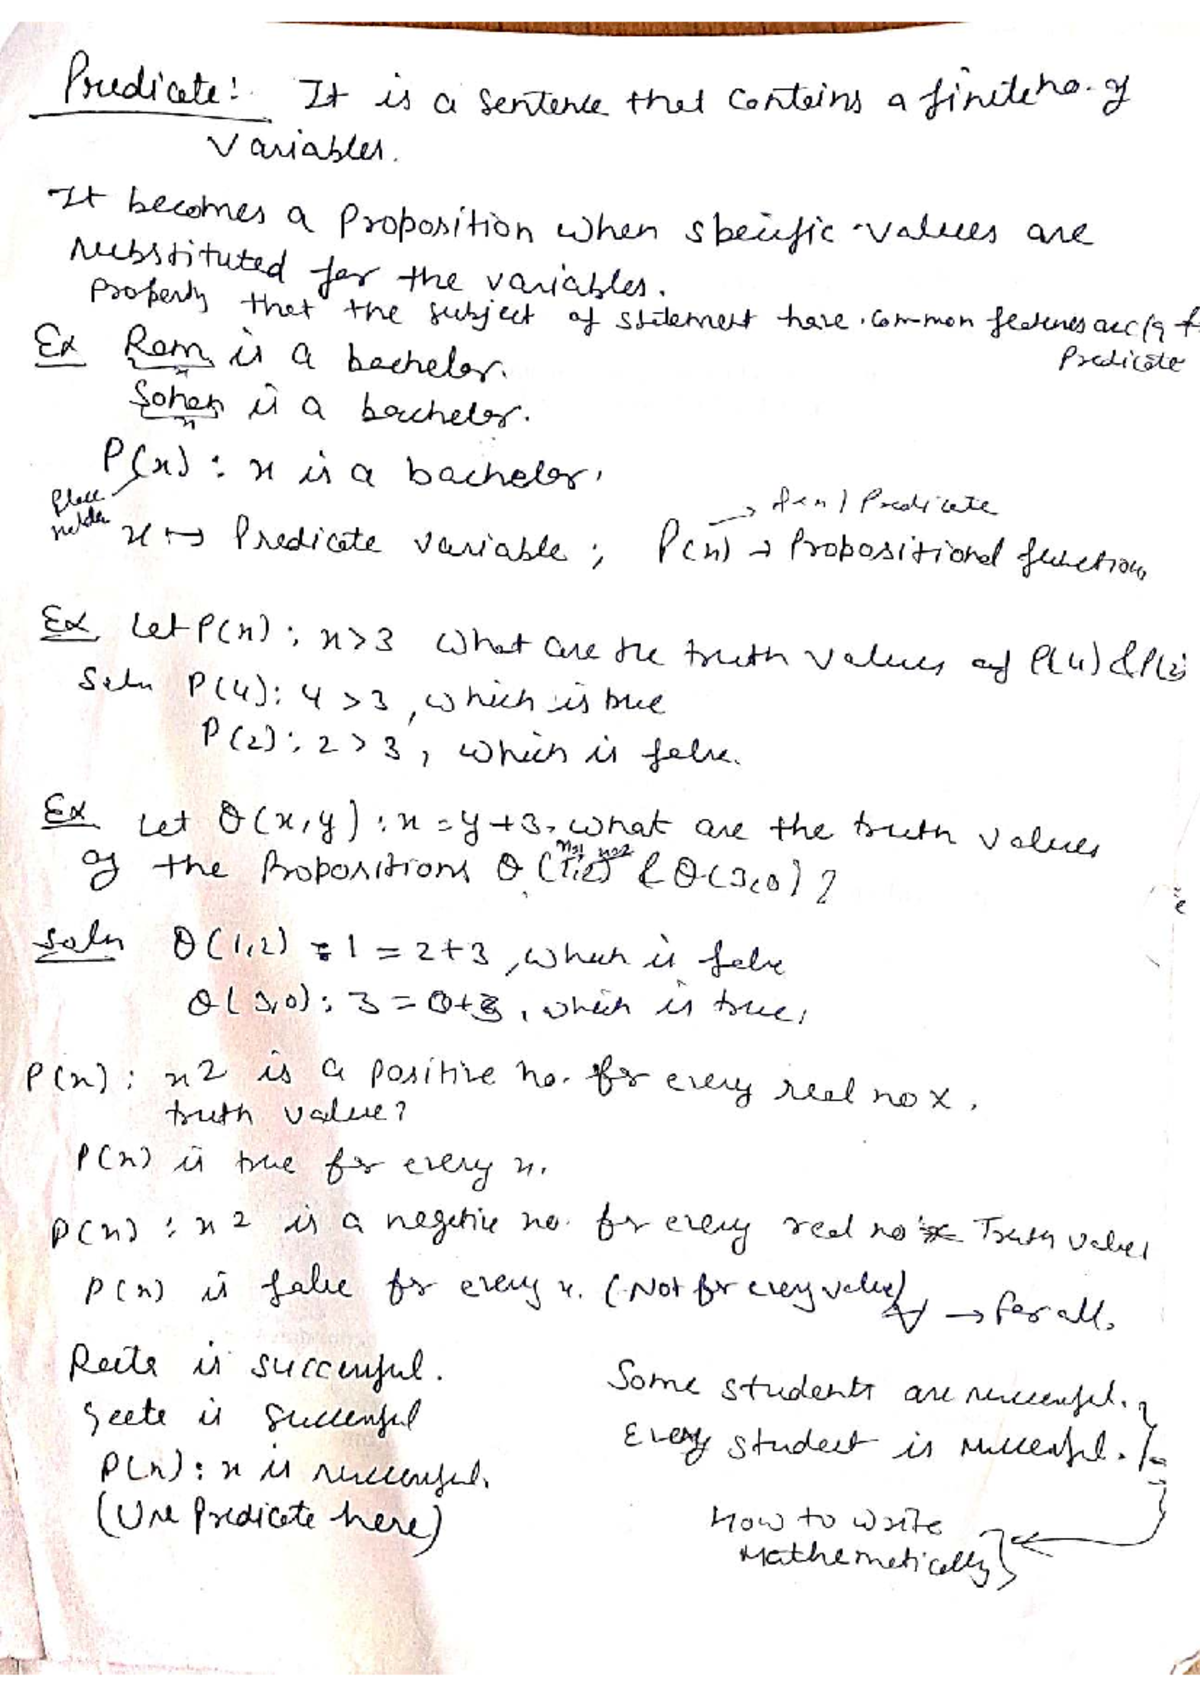 Predicate: It is a sentence that contains a finite no. of
variables.
It becomes a proposition when specific values are
substituted for the variables.
Property that the subject of statement have common features
Predicate
Ex Ram is a bachelor.
x
Sohan is a bachelor.
x
P(x) : x is a bachelor.
Place
holder
x ↦ Predicate variable ; P(x) → Propositional function
→ Predicate
Ex Let P(x) : x>3 What are the truth values of P(4) & P(2)
Soln P(4): 4 > 3, which is true
P(2): 2 > 3, which is false.
Ex Let Q(x,y) : x = y+3. what are the truth values
of the Propositions Q(1,2) & Q(3,0) ?
Soln Q(1,2) : 1 = 2+3, which is false
Q(3,0): 3 = 0+3, which is true.
P(x) : x2 is a positive no. for every real no x.
truth value?
P(x) is true for every x.
P(x) : x2 is a negative no. for every real no x Truth value
P(x) is false for every x. (Not for every value)
∀ → for all.
Reeta is successful.
Geeta is successful
P(x) : x is successful.
(Use Predicate here)
Some students are successful.
Every student is successful.
How to write
Mathematically